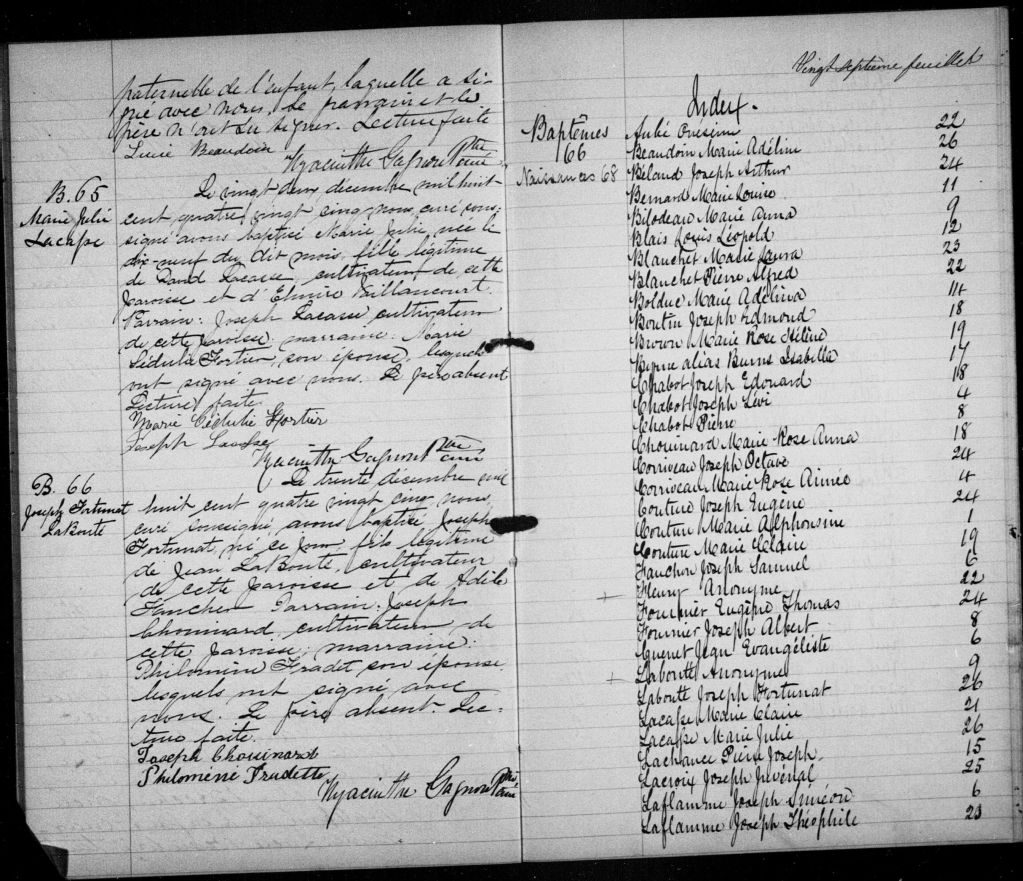 paternelle de l'enfant, laquelle a si-
gné avec nous. Le parrain et le
père n'ont su signer. Lecture faite
Lucie Beaudoin
Hyacinthe Gagnon Ptre curé
B. 65
Marie Julie
Lacasse
Le vingt deux décembre mil huit
cent quatre vingt cinq nous, curé sous-
signé avons baptisé Marie Julie, née le
dix-neuf du dit mois, fille légitime
de David Lacasse, cultivateur de cette
paroisse et d'Elmire Vaillancourt.
Parrain: Joseph Lacasse cultivateur
de cette paroisse; marraine: Marie
Sédulie Fortier, son épouse, lesquels
ont signé avec nous. Le père absent
Lecture faite.
Marie Cédulie Fortier
Joseph Lacasse
Hyacinthe Gagnon Ptre curé
B. 66
Joseph Fortunat
Labonté
Le trente décembre mil
huit cent quatre vingt cinq nous,
curé soussigné, avons baptisé Joseph
Fortunat, né ce jour, fils légitime
de Jean Labonté, cultivateur
de cette paroisse et de Adèle
Fancher Parrain: Joseph
Chouinard, cultivateur de
cette paroisse; marraine:
Philomène Fradet son épouse
lesquels ont signé avec
nous. Le père absent. Lec-
ture faite.
Joseph Chouinard
Philomène Fradette
Hyacinthe Gagnon Ptre curé
Vingt septième feuillet
Index.
Baptêmes
66
Naissances 68
Aubé Onésime 22
Beaudoin Marie Adéline 26
Beland Joseph Arthur 24
Bernard Marie Louise 11
Bilodeau Marie Anna 9
Blais Louis Léopold 12
Blanchet Marie Laura 23
Blanchet Pierre Alfred 22
Bolduc Marie Adélina 14
Boutin Joseph Edmond 18
Brown Marie Rose Hélène 19
Byrne alias Burns Isabella 17
Chabot Joseph Edouard 18
Chabot Joseph Lévi 4
Chabot Pierre 8
Chouinard Marie Rose Anna 18
Corriveau Joseph Octave 24
Corriveau Marie Rose Aimée 4
Couture Joseph Eugène 24
Couture Marie Alphonsine 1
Couture Marie Claire 19
Fauchon Joseph Samuel 6
+ Fleury Anonyme 22
Fournier Eugène Thomas 24
Fournier Joseph Albert 8
Guenet Jean Evangéliste 6
+ Labonté Anonyme 9
Labonté Joseph Fortunat 26
Lacasse Marie Claire 21
Lacasse Marie Julie 26
Lachance Pierre Joseph 15
Lacroix Joseph Juvénal 25
Laflamme Joseph Siméon 6
Laflamme Joseph Théophile 23